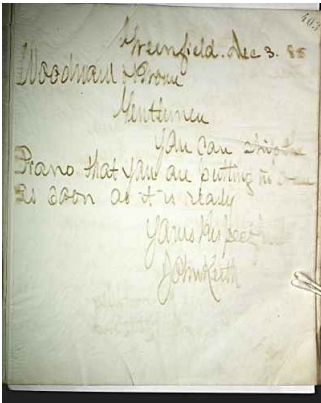 Greenfield. Dec 3. 85
Woodward & Brown
Gentlemen
You can ship the
Piano that you are putting in
as soon as it is ready
Yours Respectfully
John Keith